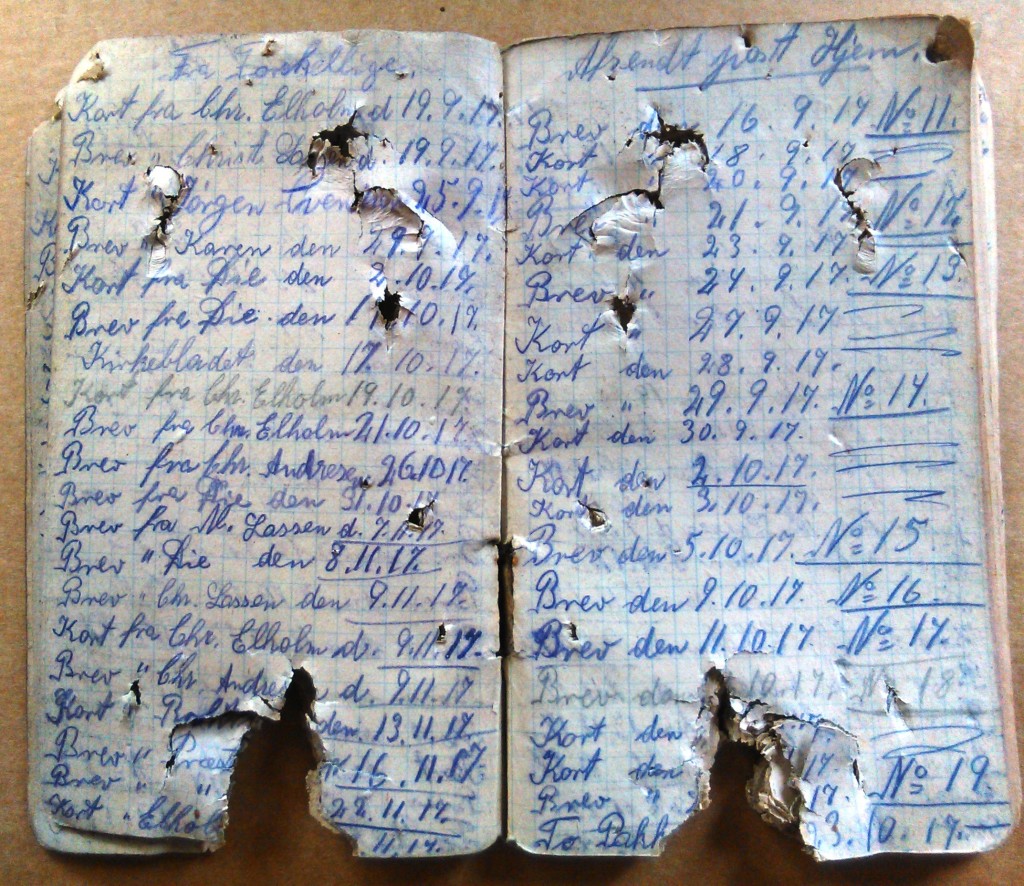 Fra Forskellige.
Kort fra Chr. Elholm d 19.9.17.
Brev " Christ. d. 19.9.17.
Kort Jörgen 25.9.1
Brev " Karen den 29.9.17.
Kort fra Die den 2.10.17.
Brev fra Die den 1 10.17.
Kirkebladet den 17.10.17.
Kort fra Chr. Elholm 19.10.17.
Brev fra Chr. Elholm 21.10.17.
Brev fra Chr. Andresen 26.10.17.
Brev fra Die den 31.10.17
Brev fra M. Lassen d. 7.11.17.
Brev " Die den 8.11.17.
Brev " Chr. Lassen den 9.11.17.
Kort fra Chr. Elholm d. 9.11.17.
Brev " Chr. Andre d. 9.11.17
Kort " den 13.11.17.
Brev " Præst 16.11.17.
Brev " " 22.11.17.
Kort " Elhol 11.17.
Afsendt post Hjem.
Brev 16.9.17 No 11.
Kort 18.9.17
Kort 20.9.17.
Br 21.9.17 No 12.
Kort den 23.9.17
Brev " 24.9.17. No 13.
Kort 27.9.17
Kort den 28.9.17.
Brev " 29.9.17. No 14.
Kort den 30.9.17.
Kort den 2.10.17.
Kort den 3.10.17.
Brev den 5.10.17. No 15.
Brev den 9.10.17. No 16
Brev den 11.10.17. No 17.
Brev de 10.17. No 18
Kort den 7.
Kort den 17.
Brev " 17. No 19.
To Pakk 23.10.17.